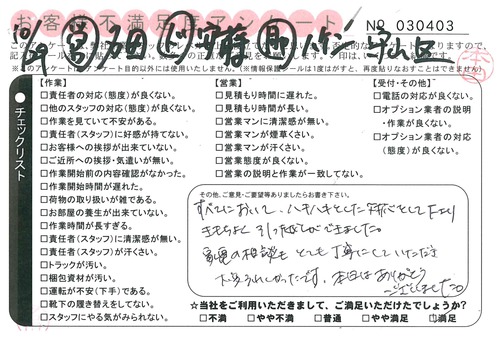 お客様不満足度アンケート
No 030403
【作業】
□責任者の対応(態度)が良くない。
□他のスタッフの対応(態度)が良くない。
□作業を見ていて不安がある。
□責任者(スタッフ)に好感が持てない。
□お客様への挨拶が出来ていない。
□ご近所への挨拶・気遣いが無い。
□作業開始前の内容確認がなかった。
□作業開始時間が遅れた。
□荷物の取り扱いが雑である。
□お部屋の養生が出来ていない。
□作業時間が長すぎる。
□責任者(スタッフ)に清潔感が無い。
□責任者(スタッフ)が汗くさい。
□トラックが汚い。
□梱包資材が汚い。
□運転が不安(下手)である。
□靴下の履き替えをしてない。
□スタッフにやる気がみられない。
チェックリスト
【営業】
□見積もり時間に遅れた。
□見積もり時間が長い。
□営業マンに清潔感が無い。
□営業マンが煙草くさい。
□営業マンが汗くさい。
□営業態度が良くない。
□営業の説明と作業が一致してない。
【受付・その他】
□電話の対応が良くない。
□オプション業者の説明
・作業が良くない。
□オプション業者の対応
(態度)が良くない。
その他、ご意見・ご要望等ありましたらお書き下さい。
すべてにおいて、ハキハキとした対応をして下さり
きもちよく引っこしができました。
家電の相談も とても丁寧にしていただき
大変うれしかったです。本日はありがとう
ございました。
☆当社をご利用いただきまして、ご満足いただけたでしょうか?
□不満 □やや不満 □普通 □やや満足 □満足